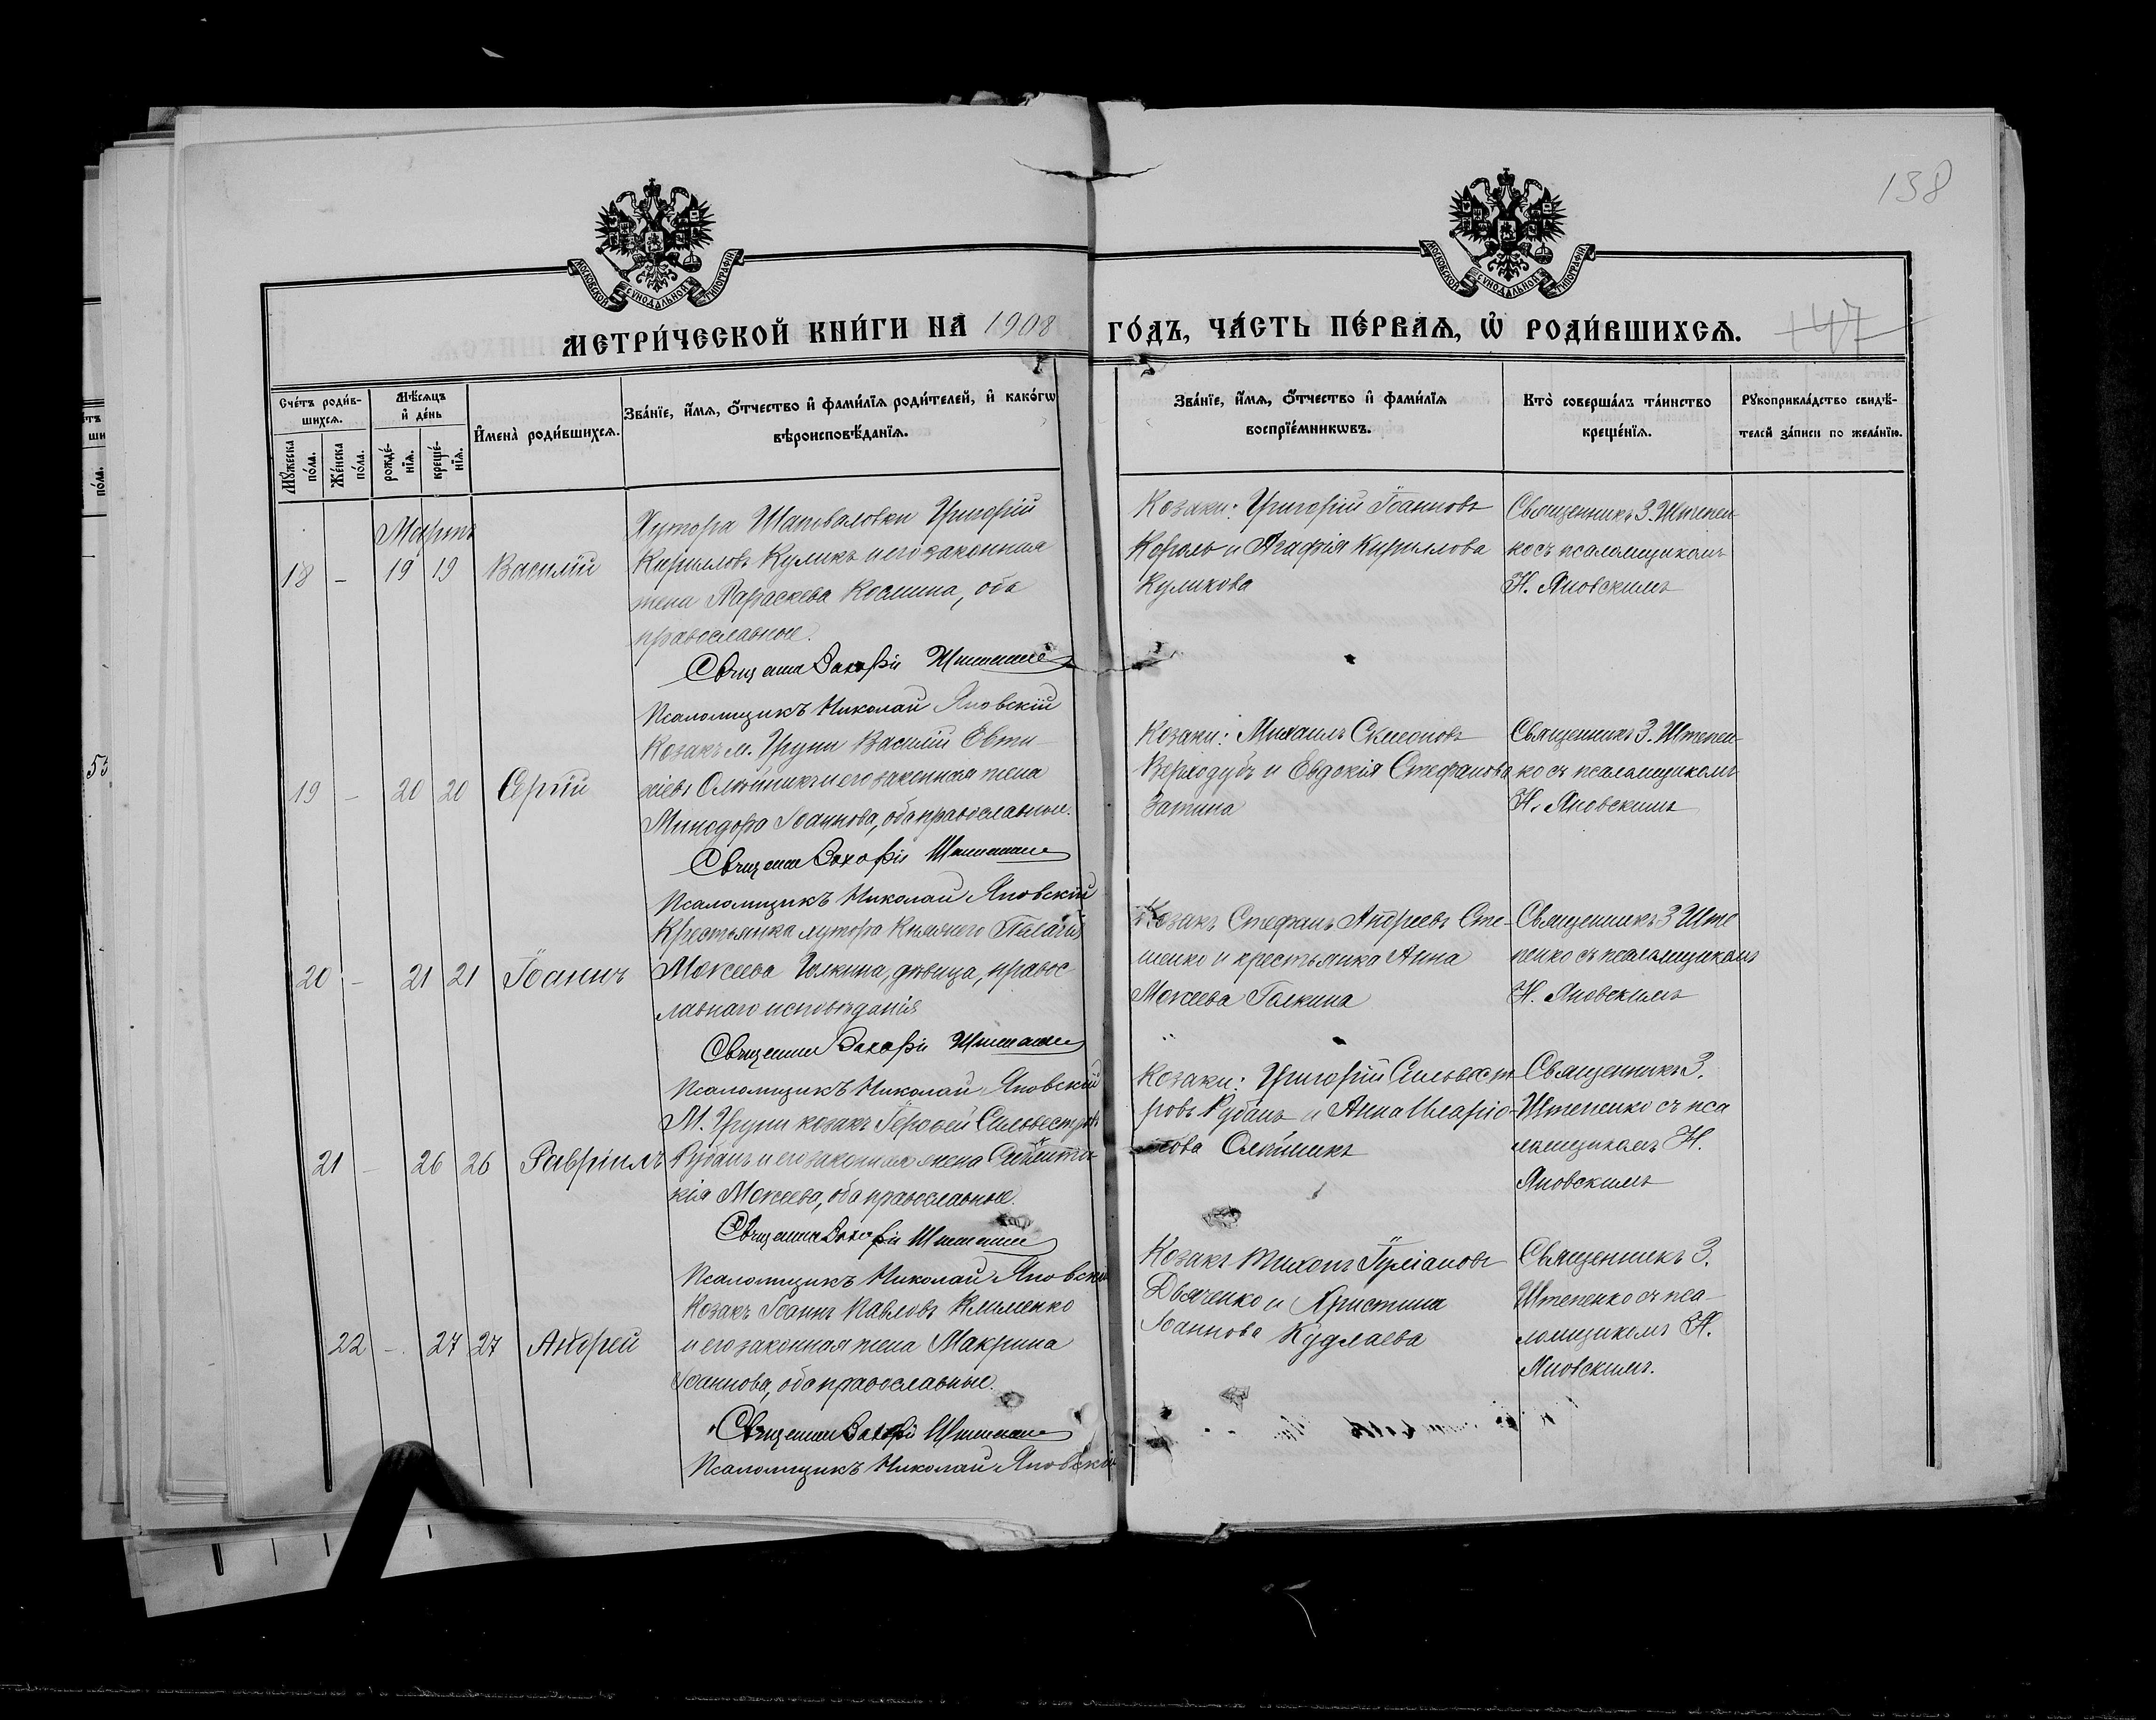 138
МОСКОВСКОЙ СУНОДАЛЬНОЙ ТИПОГРАФІИ
МОСКОВСКОЙ СУНОДАЛЬНОЙ ТИПОГРАФІИ
МЕТРИ́ЧЕСКОЙ КНИ́ГИ НА 1908 ГО́ДЪ, ЧА́СТЬ ПЕ́РВАѦ, Ѡ҆ РОДИ́ВШИХСѦ.
147
Сче́тъ роди́в-
шихсѧ.
Мꙋ́жеска по́ла.
Же́нска по́ла.
Мѣ́сѧцъ
и҆ де́нь
рожде́-
нїѧ.
креще́-
нїѧ.
И҆мена̀ роди́вшихсѧ.
Зва́нїе, и҆́мѧ, ѻ҆́тчество и҆ фами́лїѧ роди́телей, и҆ како́гѡ
вѣроисповѣ́данїѧ.
Зва́нїе, и҆́мѧ, ѻ҆́тчество и҆ фами́лїѧ
воспрїе́мникѡвъ.
Кто̀ соверша́лъ та́инство
креще́нїѧ.
Рꙋкоприкла́дство свидѣ́-
телей за́писи по жела́нїю.
Мартъ
18 - 19 19 Василій
Хутора Шаповаловки Григорій
Кирилловъ Куликъ и его законная
жена Параскева Космина, оба
православные.
Священникъ Захарій Штепенко
Псаломщикъ Николай Яновскій
Козаки: Григорій Іоанновъ
Король и Агафія Кириллова
Куликова
Священникъ З. Штепен-
ко съ псаломщикомъ
Н. Яновскимъ
19 - 20 20 Сергій
Козакъ м. Груни Василій Евти-
хіевъ Олѣйникъ и его законная жена
Минодора Іоаннова, оба православные.
Священникъ Захарій Штепенко
Псаломщикъ Николай Яновскій
Козаки: Михаилъ Симеоновъ
Верходубъ и Евдокія Стефанова
Священникъ З. Штепен-
ко съ псаломщикомъ
Н. Яновскимъ
20 - 21 21 Іоаннъ
Крестьянка хутора Княжего Пелагія
Мокеева Галкина, дѣвица, правос-
лавнаго исповѣданія
Священникъ Захарій Штепенко
Псаломщикъ Николай Яновскій
Козакъ Стефанъ Андреевъ Сте-
ценко и крестьянка Анна
Мокеева Галкина
Священникъ З Ште
пенко съ псаломщикомъ
Н. Яновскимъ
21 - 26 26 Гавріилъ
М. Груни козакъ Іерофей Сильвестровъ
Рубанъ и его законная жена
Мокеева, оба православные.
Священникъ Захарій Штепенко
Псаломщикъ Николай Яновскій
Козаки: Григорій Сильвест-
ровъ Рубанъ и Анна Иларіо-
нова Олѣйникъ
Священникъ З.
Штепенко съ пса
ломщикомъ Н.
Яновскимъ
22 - 27 27 Андрей
Козакъ Іоаннъ Павловъ Клименко
и его законная жена Макрина
Іоаннова, оба православные.
Священникъ Захарій Штепенко
Псаломщикъ Николай Яновскій
Козакъ Тихонъ Іуліановъ
Дьяченко и Христина
Іоаннова Кудлаева
Священникъ З.
Штепенко съ пса-
ломщикомъ Н.
Яновскимъ.